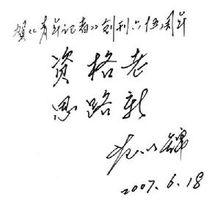 贺《青年记者》创刊六十五周年
资格老
思路新
范以锦
2007.6.18